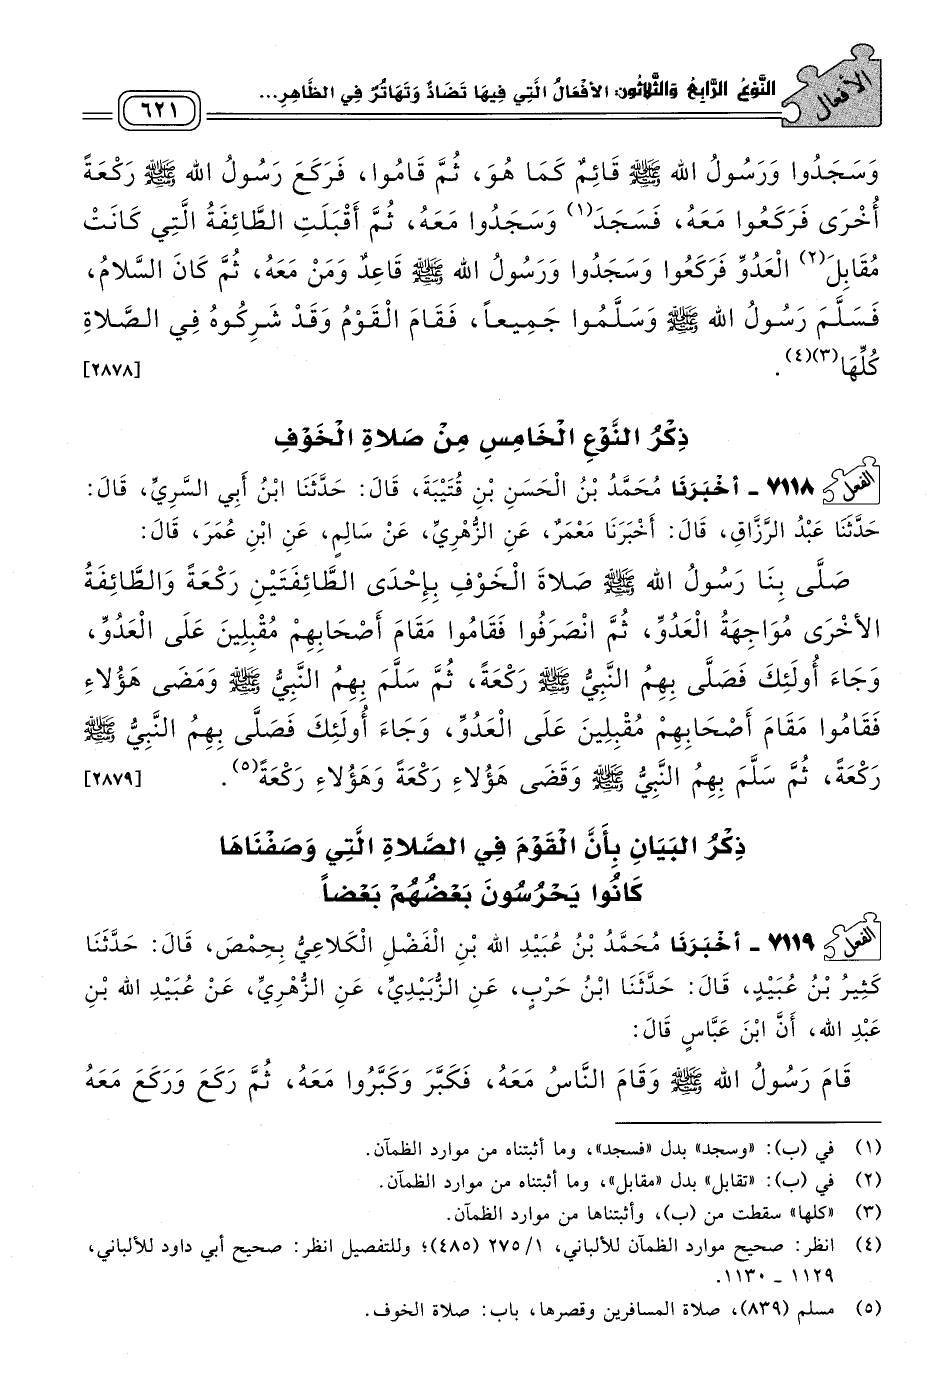 الأفعال
النَّوْعُ الرَّابِعُ وَالثَّلَاثُونَ: الأَفْعَالُ الَّتِي فِيهَا تَضَادٌ وَتَهَاتُرٌ فِي الظَّاهِرِ...
٦٢١
وَسَجَدُوا وَرَسُولُ الله ﷺ قَائِمٌ كَمَا هُوَ، ثُمَّ قَامُوا، فَرَكَعَ رَسُولُ الله ﷺ رَكْعَةً
أُخْرَى فَرَكَعُوا مَعَهُ، فَسَجَدَ(١) وَسَجَدُوا مَعَهُ، ثُمَّ أَقْبَلَتِ الطَّائِفَةُ الَّتِي كَانَتْ
مُقَابِلَ(٢) الْعَدُوِّ فَرَكَعُوا وَسَجَدُوا وَرَسُولُ الله ﷺ قَاعِدٌ وَمَنْ مَعَهُ، ثُمَّ كَانَ السَّلامُ،
فَسَلَّمَ رَسُولُ الله ﷺ وَسَلَّمُوا جَمِيعاً، فَقَامَ الْقَوْمُ وَقَدْ شَرِكُوهُ فِي الصَّلاةِ
كُلِّهَا(٣)(٤). [٢٨٧٨]
ذِكْرُ النَّوْعِ الْخَامِسِ مِنْ صَلاةِ الْخَوْفِ
الفعل ٧١١٨ - أَخْبَرَنَا مُحَمَّدُ بْنُ الْحَسَنِ بْنِ قُتَيْبَةَ، قَالَ: حَدَّثَنَا ابْنُ أَبِي السَّرِيِّ، قَالَ:
حَدَّثَنَا عَبْدُ الرَّزَّاقِ، قَالَ: أَخْبَرَنَا مَعْمَرٌ، عَنِ الزُّهْرِيِّ، عَنْ سَالِمٍ، عَنِ ابْنِ عُمَرَ، قَالَ:
صَلَّى بِنَا رَسُولُ الله ﷺ صَلاةَ الْخَوْفِ بِإِحْدَى الطَّائِفَتَيْنِ رَكْعَةً وَالطَّائِفَةُ
الأخْرَى مُوَاجِهَةُ الْعَدُوِّ، ثُمَّ انْصَرَفُوا فَقَامُوا مَقَامَ أَصْحَابِهِمْ مُقْبِلِينَ عَلَى الْعَدُوِّ،
وَجَاءَ أُولَئِكَ فَصَلَّى بِهِمُ النَّبِيُّ ﷺ رَكْعَةً، ثُمَّ سَلَّمَ بِهِمُ النَّبِيُّ ﷺ وَمَضَى هَؤُلاءِ
فَقَامُوا مَقَامَ أَصْحَابِهِمْ مُقْبِلِينَ عَلَى الْعَدُوِّ، وَجَاءَ أُولَئِكَ فَصَلَّى بِهِمُ النَّبِيُّ ﷺ
رَكْعَةً، ثُمَّ سَلَّمَ بِهِمُ النَّبِيُّ ﷺ وَقَضَى هَؤُلاءِ رَكْعَةً وَهَؤُلاءِ رَكْعَةً(٥). [٢٨٧٩]
ذِكْرُ البَيَانِ بِأَنَّ الْقَوْمَ فِي الصَّلاةِ الَّتِي وَصَفْنَاهَا
كَانُوا يَحْرُسُونَ بَعْضُهُمْ بَعْضاً
الفعل ٧١١٩ - أَخْبَرَنَا مُحَمَّدُ بْنُ عُبَيْدِ الله بْنِ الْفَضْلِ الْكَلاعِيُّ بِحِمْصَ، قَالَ: حَدَّثَنَا
كَثِيرُ بْنُ عُبَيْدٍ، قَالَ: حَدَّثَنَا ابْنُ حَرْبٍ، عَنِ الزُّبَيْدِيِّ، عَنِ الزُّهْرِيِّ، عَنْ عُبَيْدِ الله بْنِ
عَبْدِ الله، أَنَّ ابْنَ عَبَّاسٍ قَالَ:
قَامَ رَسُولُ الله ﷺ وَقَامَ النَّاسُ مَعَهُ، فَكَبَّرَ وَكَبَّرُوا مَعَهُ، ثُمَّ رَكَعَ وَرَكَعَ مَعَهُ
(١) في (ب): «وسجد» بدل «فسجد»، وما أثبتناه من موارد الظمآن.
(٢) في (ب): «تقابل» بدل «مقابل»، وما أثبتناه من موارد الظمآن.
(٣) «كلها» سقطت من (ب)، وأثبتناها من موارد الظمآن.
(٤) انظر: صحيح موارد الظمآن للألباني، ١/ ٢٧٥ (٤٨٥)؛ وللتفصيل انظر: صحيح أبي داود للألباني،
١١٢٩ - ١١٣٠.
(٥) مسلم (٨٣٩)، صلاة المسافرين وقصرها، باب: صلاة الخوف.